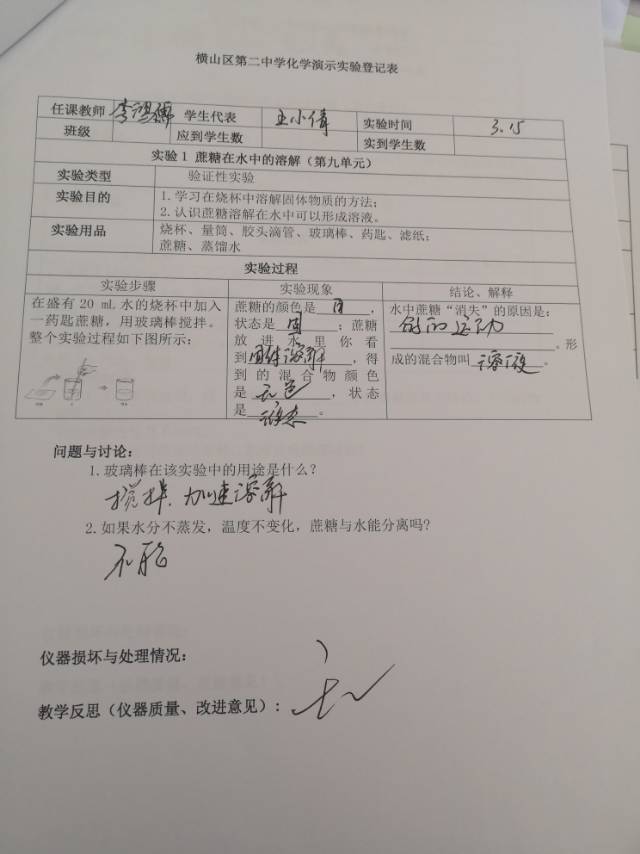 横山区第二中学化学演示实验登记表
任课教师 学生代表 王小倩 实验时间 3.15
班级 应到学生数 实到学生数
实验 1 蔗糖在水中的溶解（第九单元）
实验类型 验证性实验
实验目的 1.学习在烧杯中溶解固体物质的方法；
2.认识蔗糖溶解在水中可以形成溶液。
实验用品 烧杯、量筒、胶头滴管、玻璃棒、药匙、滤纸；
蔗糖、蒸馏水
实验过程
实验步骤 实验现象 结论、解释
在盛有 20 mL 水的烧杯中加入
一药匙蔗糖，用玻璃棒搅拌。
整个实验过程如下图所示：
蔗糖的颜色是 白 ，
状态是 固 ；蔗糖
放进水里你看
到 固体溶解 ，得
到的混合物颜色
是 无色 ，状态
是 液态 。
水中蔗糖“消失”的原因是：
运动
。形
成的混合物叫 溶液 。
问题与讨论：
1.玻璃棒在该实验中的用途是什么？
搅拌、加速溶解
2.如果水分不蒸发，温度不变化，蔗糖与水能分离吗?
不能
仪器损坏与处理情况：
教学反思（仪器质量、改进意见）：
无